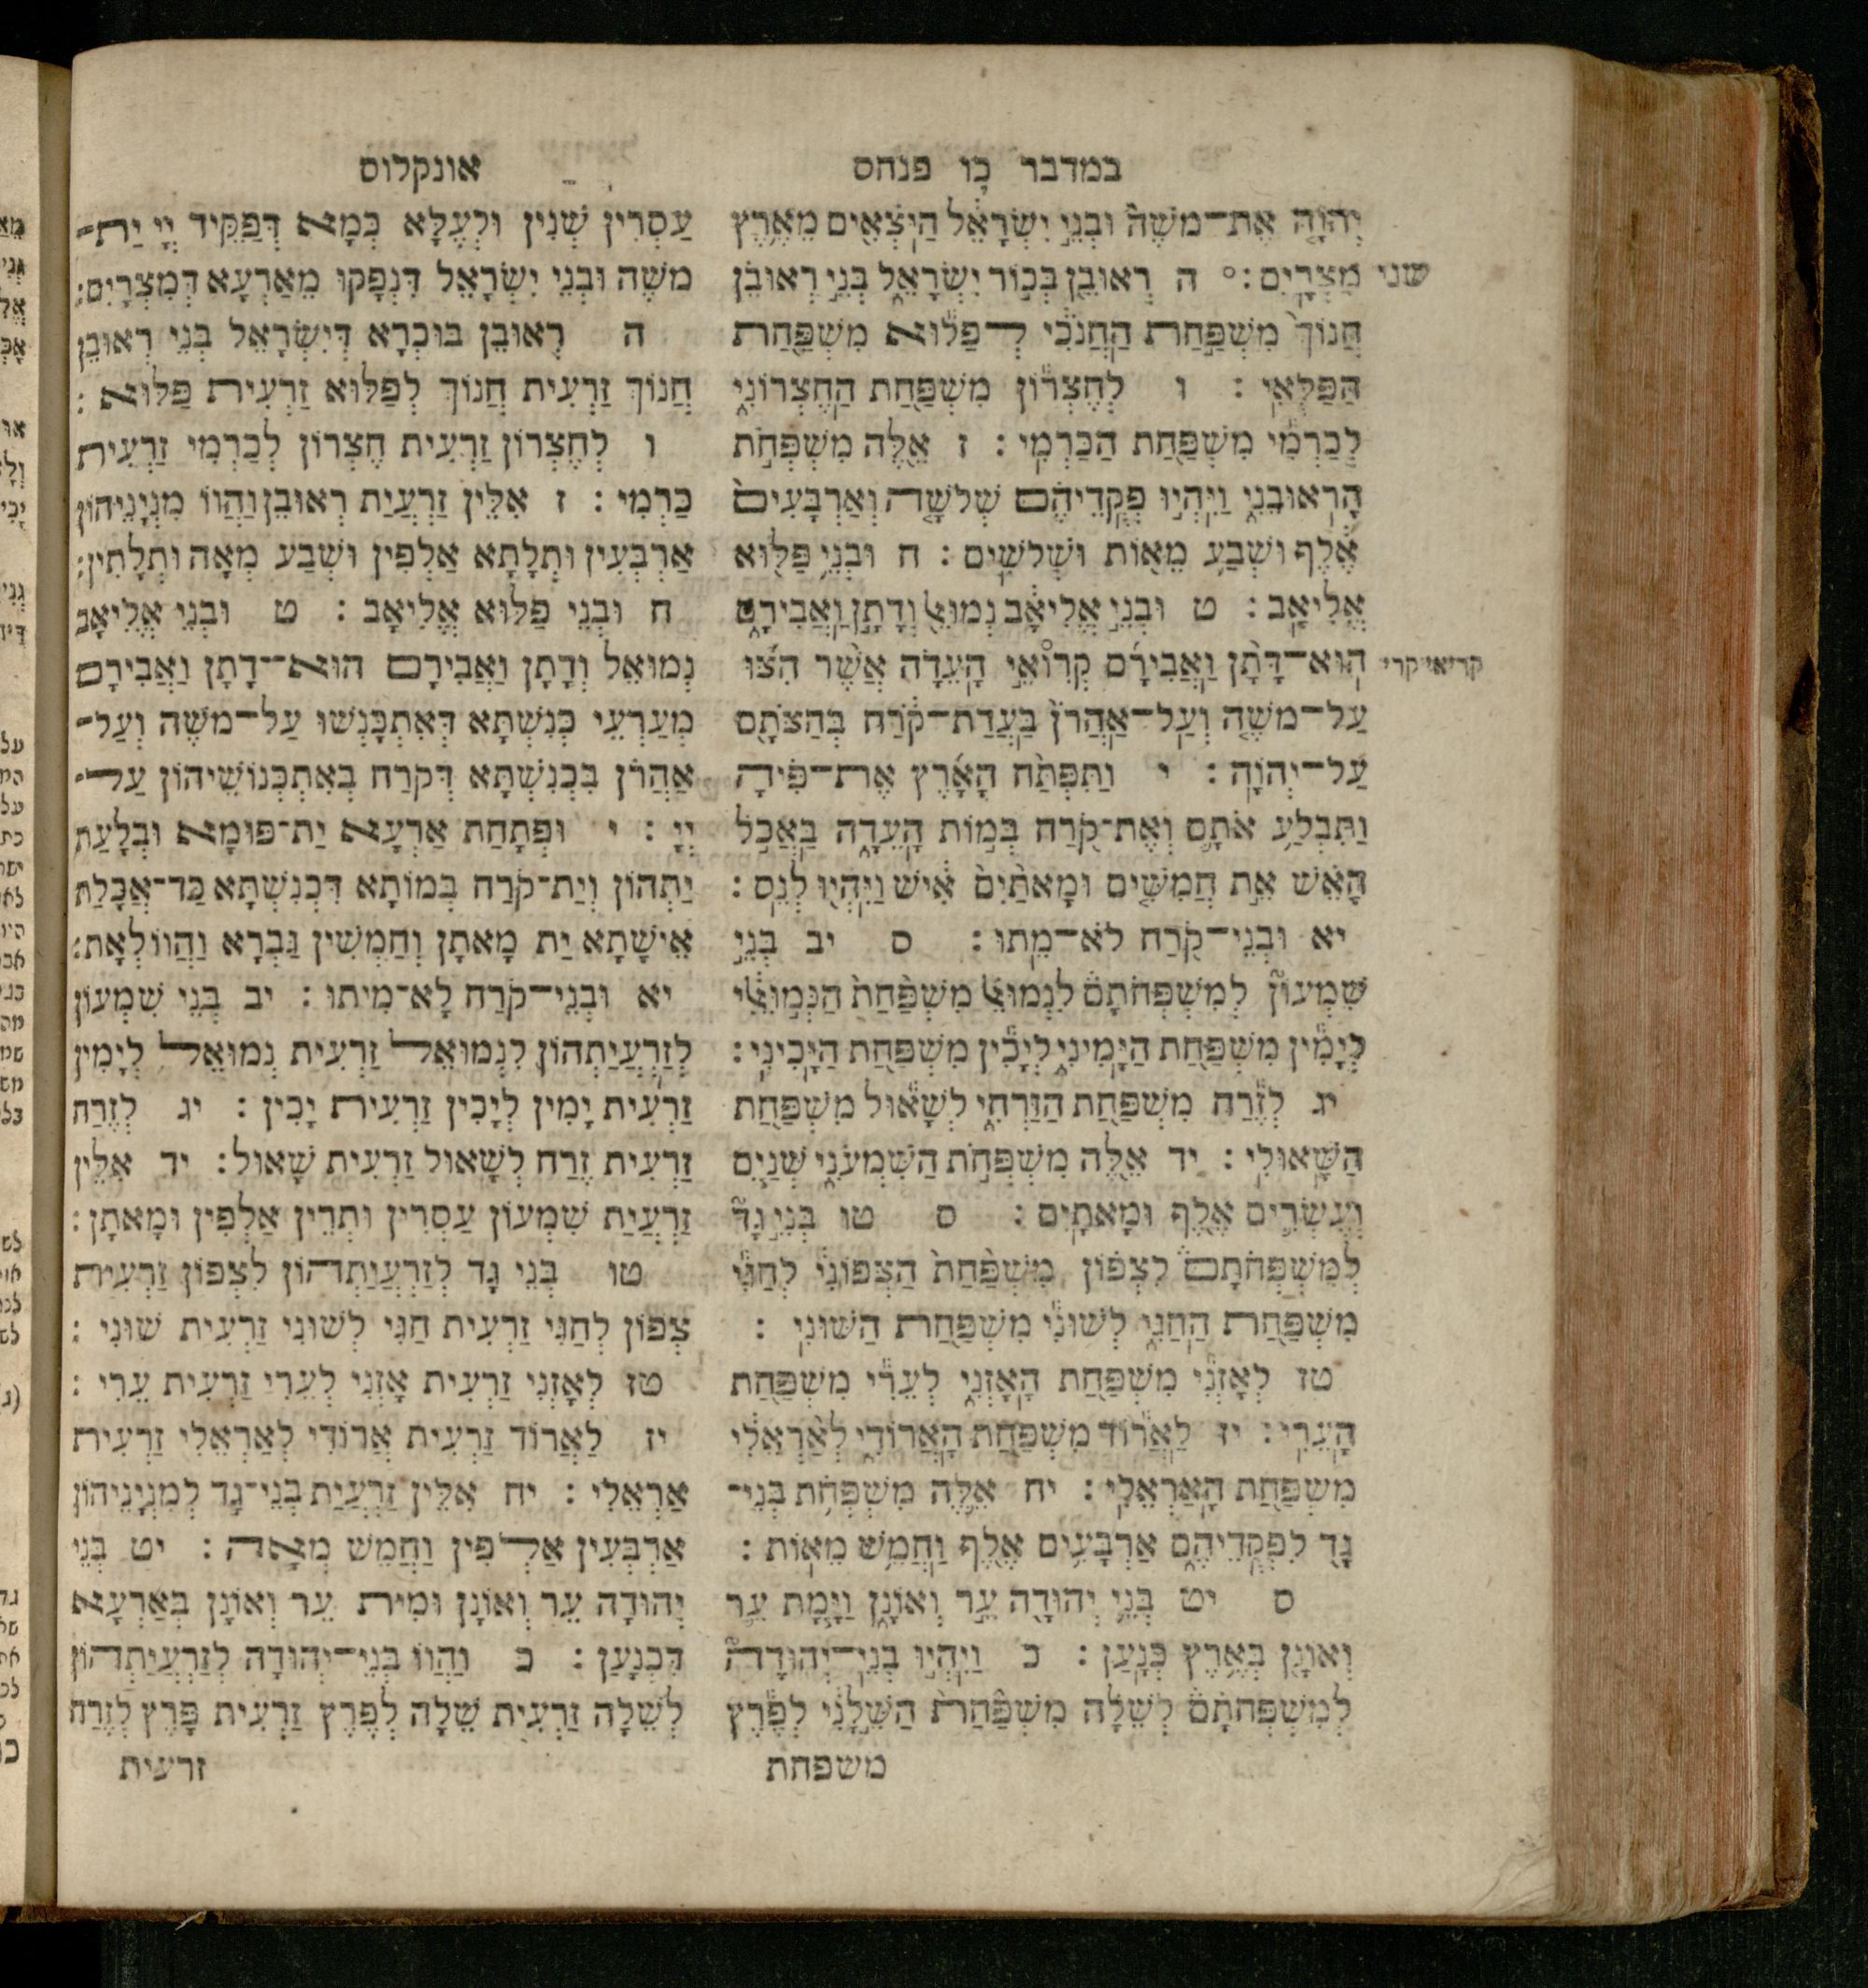 במדבר כו פנחס
יְהוָֹה אֶת־מֹשֶׁה וּבְנֵי יִשְׂרָאֵל הַיֹּצְאִים מֵאֶרֶץ
שני מִצְרָיִם׃ ה רְאוּבֵן בְּכוֹר יִשְׂרָאֵל בְּנֵי רְאוּבֵן
חֲנוֹךְ מִשְׁפַּחַת הַחֲנֹכִי לְפַלּוּא מִשְׁפַּחַת
הַפַּלֻּאִי׃ ו לְחֶצְרוֹן מִשְׁפַּחַת הַחֶצְרוֹנִי
לְכַרְמִי מִשְׁפַּחַת הַכַּרְמִי׃ ז אֵלֶּה מִשְׁפְּחֹת
הָרְאוּבֵנִי וַיִּהְיוּ פְקֻדֵיהֶם שְׁלֹשָׁה וְאַרְבָּעִים
אֶלֶף וּשְׁבַע מֵאוֹת וּשְׁלֹשִׁים׃ ח וּבְנֵי פַלּוּא
אֱלִיאָב׃ ט וּבְנֵי אֱלִיאָב נְמוּאֵל וְדָתָן וַאֲבִירָם
הוּא־דָתָן וַאֲבִירָם קְרִוּאֵי הָעֵדָה אֲשֶׁר הִצּוּ קריאי קרי
עַל־מֹשֶׁה וְעַל־אַהֲרֹן בַּעֲדַת־קֹרַח בְּהַצֹּתָם
עַל־יְהוָֹה׃ י וַתִּפְתַּח הָאָרֶץ אֶת־פִּיהָ
וַתִּבְלַע אֹתָם וְאֶת־קֹרַח בְּמוֹת הָעֵדָה בַּאֲכֹל
הָאֵשׁ אֵת חֲמִשִּׁים וּמָאתַיִם אִישׁ וַיִּהְיוּ לְנֵס׃
יא וּבְנֵי־קֹרַח לֹא־מֵתוּ׃ ס יב בְּנֵי
שִׁמְעוֹן לְמִשְׁפְּחֹתָם לִנְמוּאֵל מִשְׁפַּחַת הַנְּמוּאֵלִי
לְיָמִין מִשְׁפַּחַת הַיָּמִינִי לְיָכִין מִשְׁפַּחַת הַיָּכִינִי׃
יג לְזֶרַח מִשְׁפַּחַת הַזַּרְחִי לְשָׁאוּל מִשְׁפַּחַת
הַשָּׁאוּלִי׃ יד אֵלֶּה מִשְׁפְּחֹת הַשִּׁמְעֹנִי שְׁנַיִם
וְעֶשְׂרִים אֶלֶף וּמָאתָיִם׃ ס טו בְּנֵי גָד
לְמִשְׁפְּחֹתָם לִצְפוֹן מִשְׁפַּחַת הַצְּפוֹנִי לְחַגִּי
מִשְׁפַּחַת הַחַגִּי לְשׁוּנִי מִשְׁפַּחַת הַשּׁוּנִי׃
טז לְאָזְנִי מִשְׁפַּחַת הָאָזְנִי לְעֵרִי מִשְׁפַּחַת
הָעֵרִי׃ יז לַאֲרוֹד מִשְׁפַּחַת הָאֲרוֹדִי לְאַרְאֵלִי
מִשְׁפַּחַת הָאַרְאֵלִי׃ יח אֵלֶּה מִשְׁפְּחֹת בְּנֵי־
גָד לִפְקֻדֵיהֶם אַרְבָּעִים אֶלֶף וַחֲמֵשׁ מֵאוֹת׃
ס יט בְּנֵי יְהוּדָה עֵר וְאוֹנָן וַיָּמָת עֵר
וְאוֹנָן בְּאֶרֶץ כְּנָעַן׃ כ וַיִּהְיוּ בְנֵי־יְהוּדָה
לְמִשְׁפְּחֹתָם לְשֵׁלָה מִשְׁפַּחַת הַשֵּׁלָנִי לְפֶרֶץ
משפחת
אונקלוס
עַסְרִין שְׁנִין וּלְעֵלָּא כְּמָא דְּפַקִּיד יְיָ יַת־
מֹשֶׁה וּבְנֵי יִשְׂרָאֵל דִּנְפָקוּ מֵאַרְעָא דְמִצְרָיִם׃
ה רְאוּבֵן בּוּכְרָא דְיִשְׂרָאֵל בְּנֵי רְאוּבֵן
חֲנוֹךְ זַרְעִית חֲנוֹךְ לְפַלּוּא זַרְעִית פַּלּוּא׃
ו לְחֶצְרוֹן זַרְעִית חֶצְרוֹן לְכַרְמִי זַרְעִית
כַּרְמִי׃ ז אִלֵּין זַרְעֲיַת רְאוּבֵן וַהֲווֹ מִנְיָנֵיהוֹן
אַרְבְּעִין וּתְלָתָא אַלְפִין וּשְׁבַע מְאָה וּתְלָתִין׃
ח וּבְנֵי פַלּוּא אֱלִיאָב׃ ט וּבְנֵי אֱלִיאָב
נְמוּאֵל וְדָתָן וַאֲבִירָם הוּא־דָתָן וַאֲבִירָם
מְעַרְעֵי כְּנִשְׁתָּא דְּאִתְכְּנָשׁוּ עַל־מֹשֶׁה וְעַל־
אַהֲרֹן בִּכְנִשְׁתָּא דְקֹרַח בְּאִתְכְּנוֹשֵׁיהוֹן עַל־
יְיָ׃ י וּפְתָחַת אַרְעָא יַת־פּוּמָא וּבְלָעַת
יַתְהוֹן וְיַת־קֹרַח בְּמוֹתָא דִּכְנִשְׁתָּא כַּד־אֲכָלַת
אֵישָׁתָא יַת מָאתָן וְחַמְשִׁין גַּבְרָא וַהֲווֹ לְאָת׃
יא וּבְנֵי־קֹרַח לָא־מִיתוּ׃ יב בְּנֵי שִׁמְעוֹן
לְזַרְעֲיַתְהוֹן לִנְמוּאֵל זַרְעִית נְמוּאֵל לְיָמִין
זַרְעִית יָמִין לְיָכִין זַרְעִית יָכִין׃ יג לְזֶרַח
זַרְעִית זֶרַח לְשָׁאוּל זַרְעִית שָׁאוּל׃ יד אִלֵּין
זַרְעֲיַת שִׁמְעוֹן עַסְרִין וּתְרֵין אַלְפִין וּמָאתָן׃
טו בְּנֵי גָד לְזַרְעֲיַתְהוֹן לִצְפוֹן זַרְעִית
צְפוֹן לְחַגִּי זַרְעִית חַגִּי לְשׁוּנִי זַרְעִית שׁוּנִי׃
טז לְאָזְנִי זַרְעִית אָזְנִי לְעֵרִי זַרְעִית עֵרִי׃
יז לַאֲרוֹד זַרְעִית אֲרוֹדִי לְאַרְאֵלִי זַרְעִית
אַרְאֵלִי׃ יח אִלֵּין זַרְעֲיַת בְּנֵי־גָד לְמִנְיָנֵיהוֹן
אַרְבְּעִין אַלְפִין וַחֲמֵשׁ מְאָה׃ יט בְּנֵי
יְהוּדָה עֵר וְאוֹנָן וּמִית עֵר וְאוֹנָן בְּאַרְעָא
דִכְנָעַן׃ כ וַהֲווֹ בְנֵי־יְהוּדָה לְזַרְעֲיַתְהוֹן
לְשֵׁלָה זַרְעִית שֵׁלָה לְפֶרֶץ זַרְעִית פֶּרֶץ לְזֶרַח
זרעית